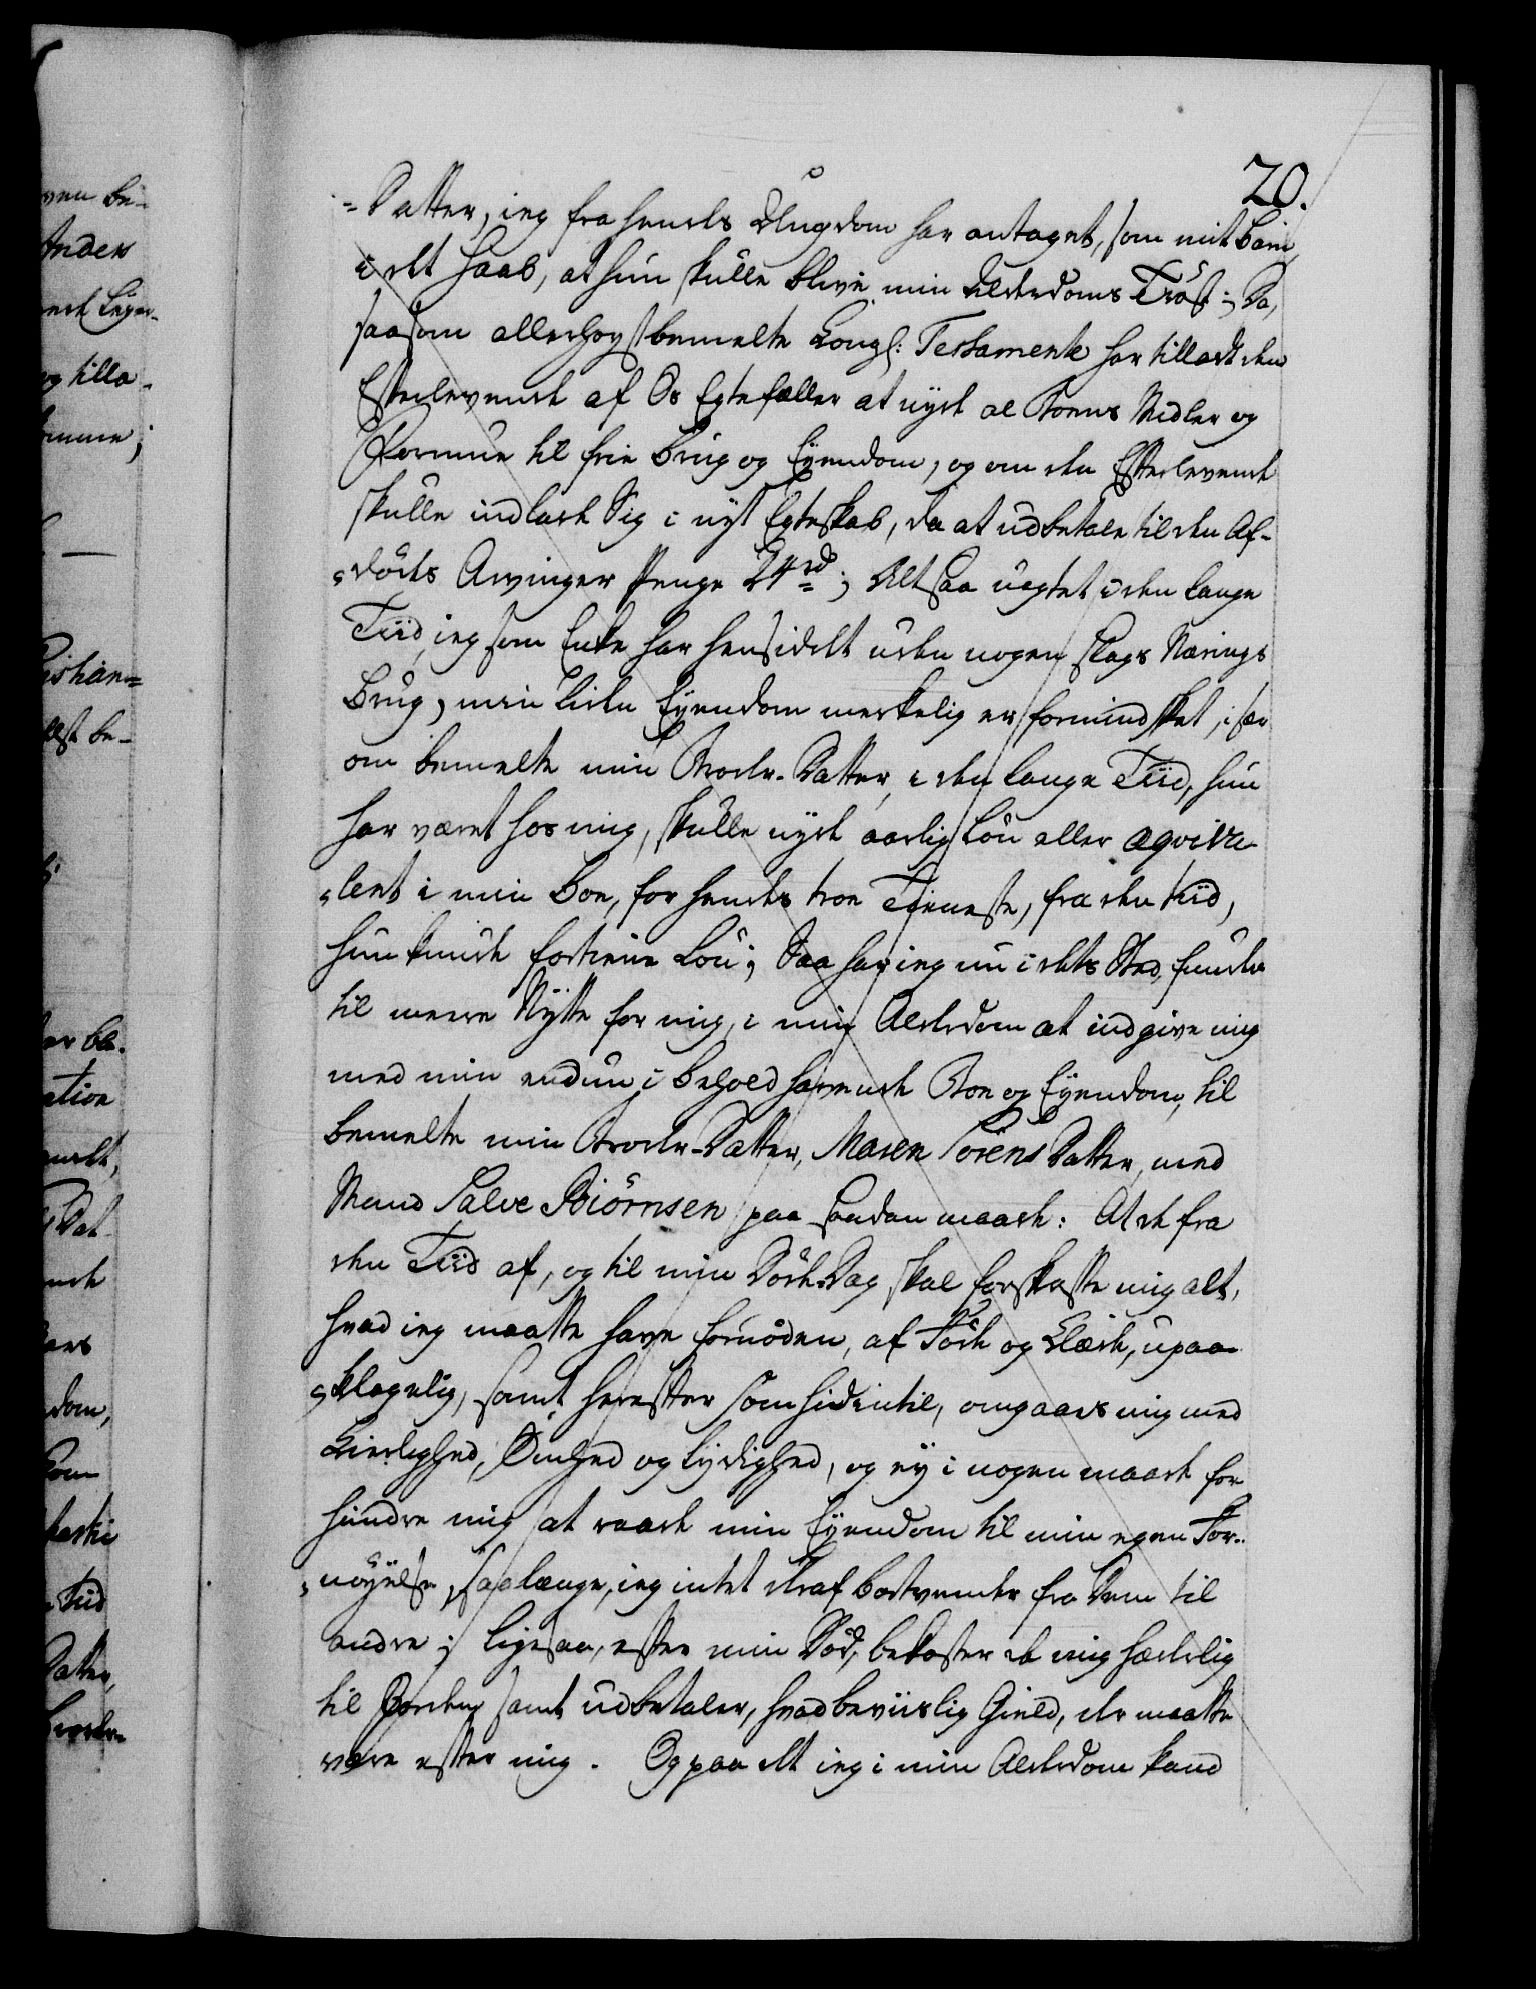 20.
-Datter, jeg fra hendes Ungdom har antaget, som mit barn,
i det Haab, at hun skulle blive min Alderdoms Trøst; Da,
saasom allerhøystbemelte Kongl: Testamente har tilladt den
Efterlevende af Os Egtefæller at nyde al Boens Midler og
Formue til frie Brug og Eyendom, og om den Efterlevende
skulle indlade Sig i nyt Egteskab, da at udbetale til den Af-
-dødes Arvinger Penge 24 rd; Altsaa uagtet i den lange
Tiid, jeg som Enke har hensiddet uden nogen slags Nærings
Brug, min liden Eyendom merkelig er formindsket, især
om bemelte min Broder-Datter, i den lange Tiid, hun
har været hos mig, skulle nyde aarlig Løn eller æqviva-
-lent i min Boe, for hendes troe Tieneste, fra den tiid,
hun kunde fortiene Løn; Saa har jeg nu i dets Sted, funden
til meere Nytte for mig, i min Alderdom at indgive mig
med min endnu i behold havende Boe og Eyendom, til
bemelte min Broder-Datter, Maren Sørens Datter, med
Mand Salve Biørnsen paa saadan maade: At de fra
den Tiid af, og til min Døde-Dag skal forskaffe mig alt,
hvad jeg maatte have fornøden, af Føde og Klæde, upaa-
-klagelig, samt herefter som hidentil, omgaaes mig med
Kierlighed, Ømhed og lydighed, og ey i nogen maade for
hindre mig at raade min Eyendom til min egen For-
-nøyelse, saalænge, jeg intet deraf bortvender fra Dem til
andre; ligesaa, efter min Død, bekoster de mig hæderlig
til Jorden samt udbetaler, hvad beviislig Gield, der maatte
være efter mig. Og paa det jeg i min Alderdom kand